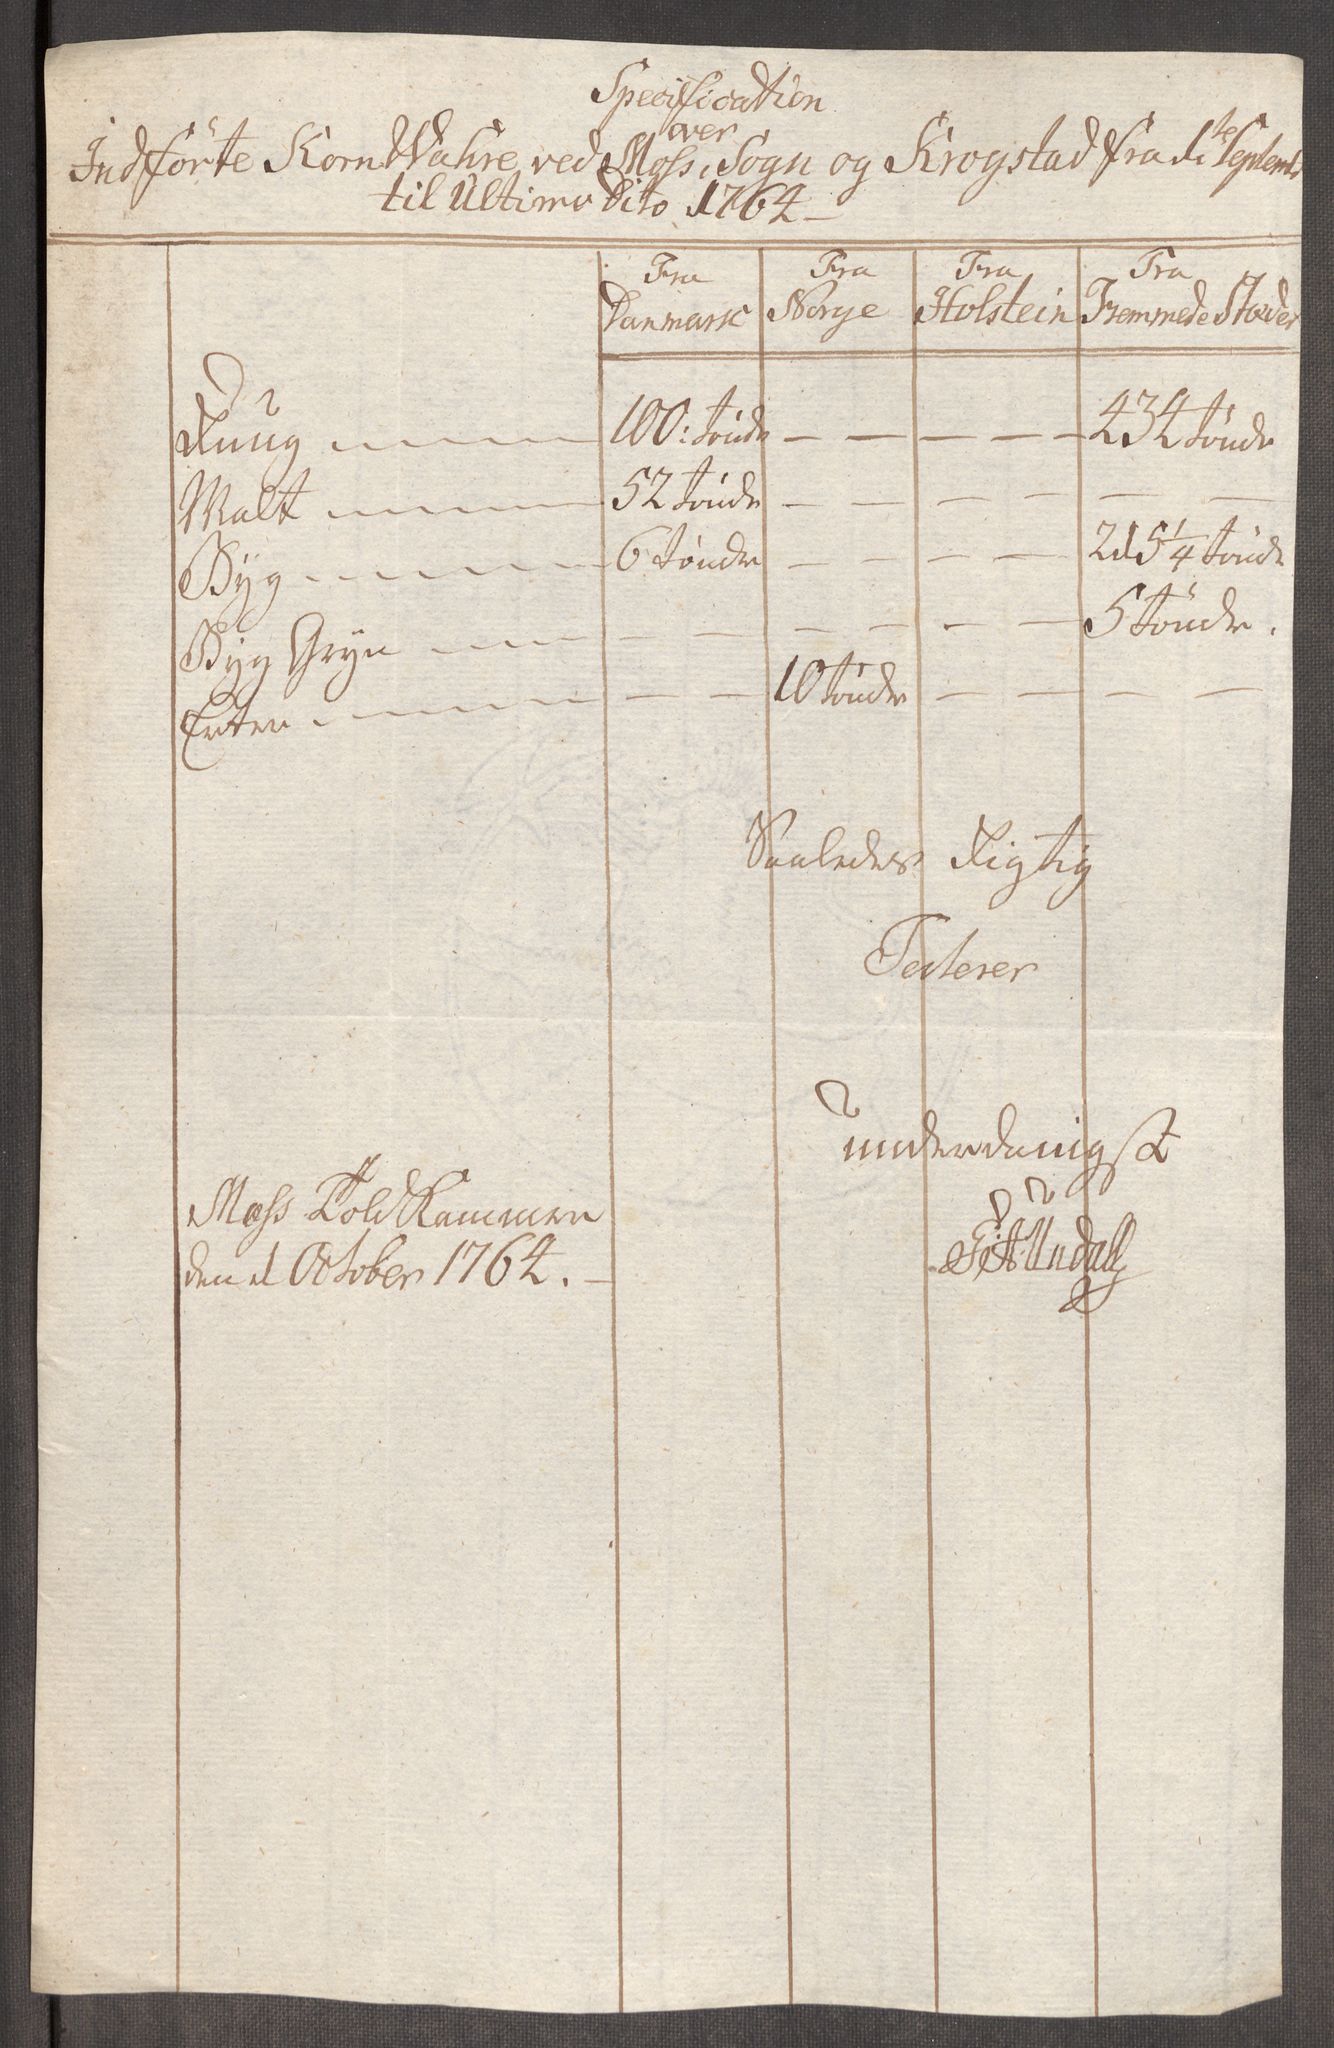 Specification
over
Indförte Korn Wahre ved Moss, Sogn og Krogstad fra d 1te Septembr
til Ultimo Dito 1764
Fra Danmark Fra Norge Fra Holstein Fra Fremmede Stæder
Ruug 100: tönder 434 tönder
Malt 52 tönder
Byg 6 tönder 215 1/4 tönder
Byg Gryn 5 tönder.
Erter 10 tönder
Saaledes Rigtig
Testerer
underdanigst
Moss Told Kammer
den 1 October 1764.